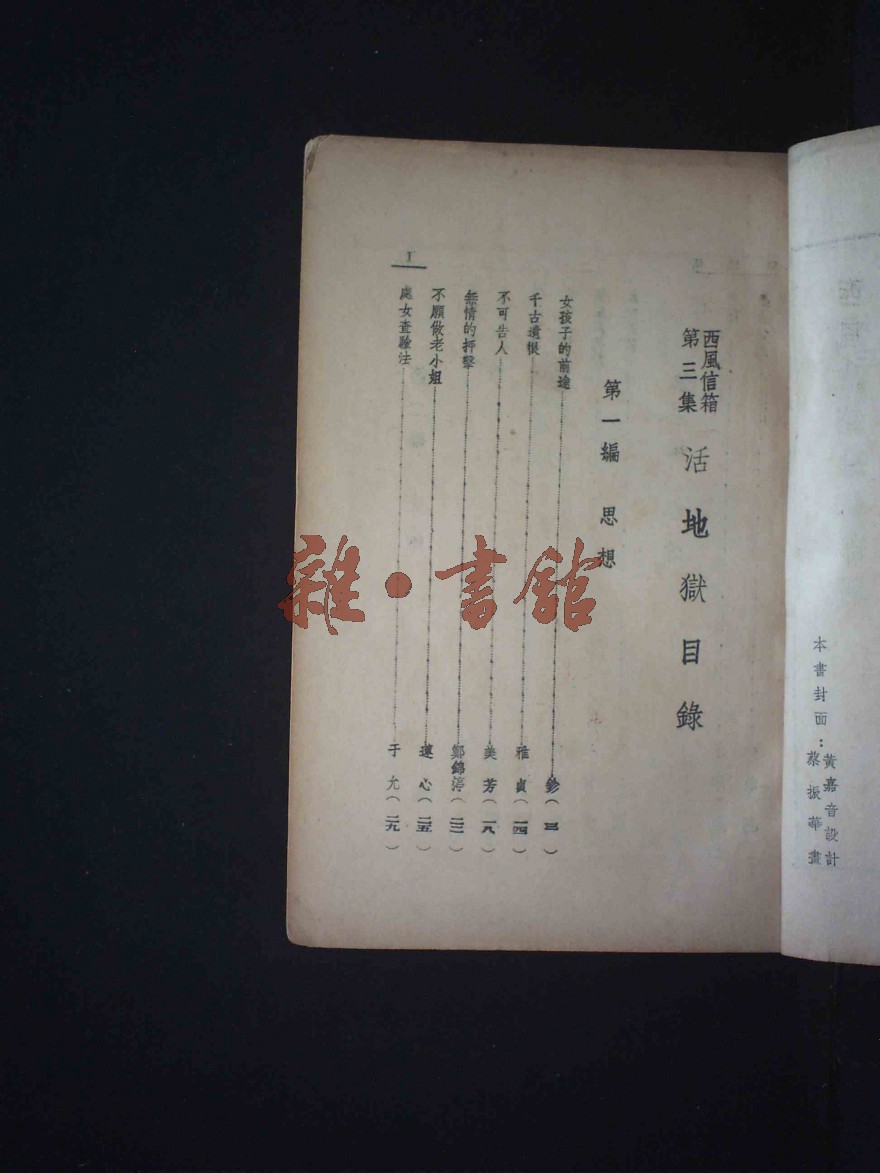 本書封面：黃嘉音設計
蔡振華畫
西風信箱
第三集
活地獄目錄
第一編 思想
女孩子的前途 鈔（三）
千古遺恨 雅貞（一四）
不可告人 美芳（一八）
無情的抨擊 鄭錦渟（二二）
不願做老小姐 蓮心（二五）
處女查驗法 于允（二九）
I
雜·書館